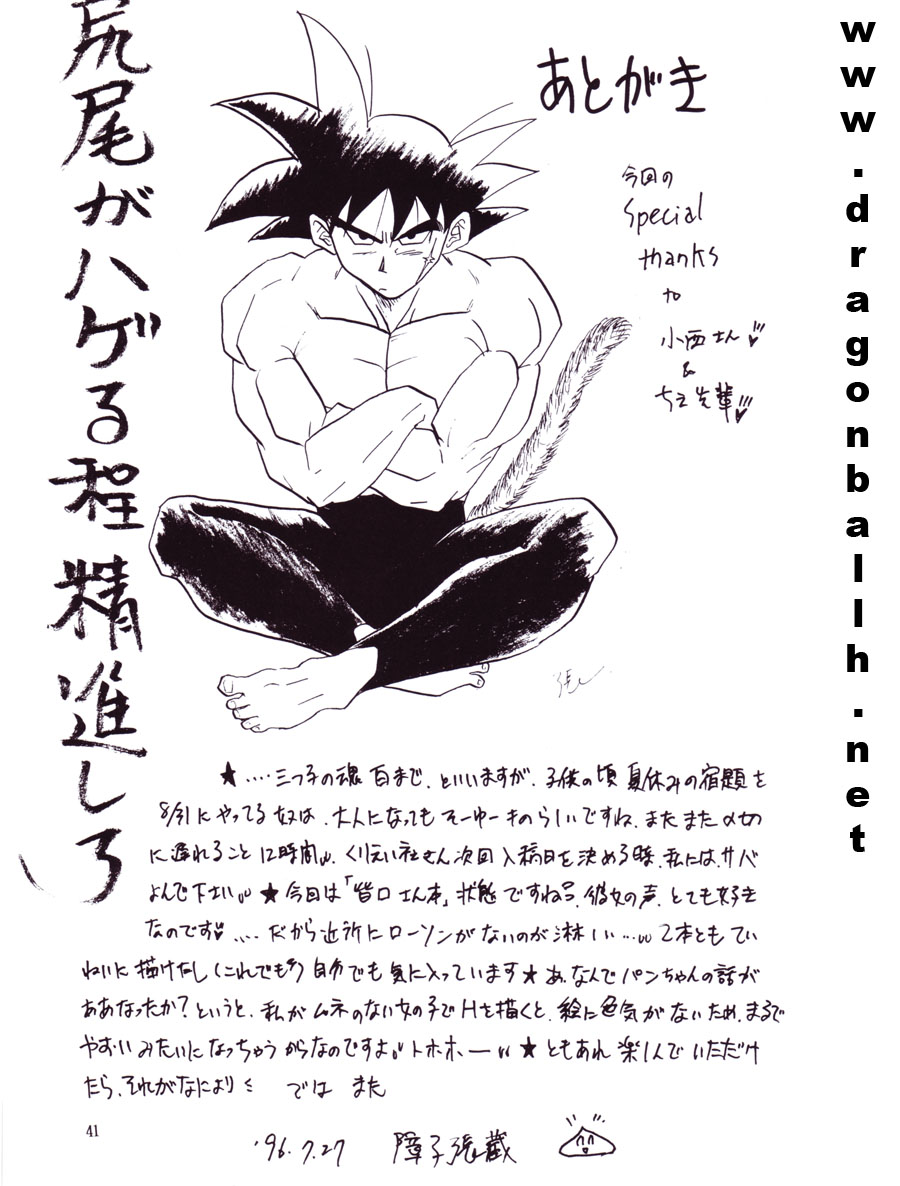 尻尾がハゲる程精進しろ
あとがき
今回の
Special
thanks
to
小西さん
&
ちえ先輩
★‥‥三つ子の魂百まで、といいますが、子供の頃夏休みの宿題を
8/31にやってる奴は、大人になってもそーゆーものらしいですね、またまた〆切
に遅れること12時間。くりえい社さん次回入稿日を決める時、私には、サバ
よんで下さい。★今回は「皆口さん本」状態ですね。彼女の声、とても好き
なのです‥‥だから近所にローソンがないのが淋しい…。2本ともてい
ねいに描けたし(これでも)自分でも気に入っています★あ、なんでパンちゃんの話が
ああなったか?というと、私がムネのない女の子でHを描くと、絵に色気がないため、まるで
やおいみたいになっちゃうからなのですよ。トホホー。★ともあれ楽しんでいただけ
たら、それがなにより では また
41
'96.7.27 障子張蔵
www.dragonballh.net